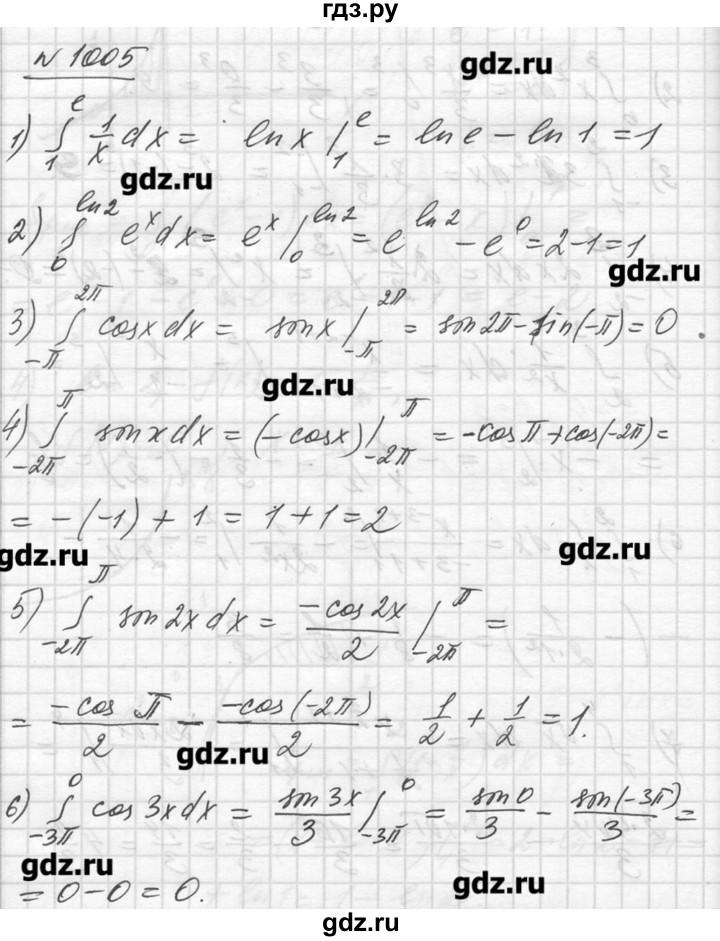 гдз.ру
№ 1005
gdz.ru
1) ∫₁ᵉ 1/x dx = ln x |₁ᵉ = ln e − ln 1 = 1
gdz.ru
2) ∫₀^{ln2} eˣdx = eˣ |₀^{ln2} = e^{ln2} − e⁰ = 2−1 = 1
gdz.ru
3) ∫_{−π}^{2π} cosx dx = sin x |_{−π}^{2π} = sin 2π − sin(−π) = 0.
gdz.ru
4) ∫_{−2π}^{π} sin x dx = (−cosx) |_{−2π}^{π} = −cos π + cos(−2π) =
= −(−1) + 1 = 1+1 = 2
gdz.ru
gdz.ru
5) ∫_{−2π}^{π} sin 2x dx = −cos 2x / 2 |_{−2π}^{π} =
= −cos π / 2 − −cos(−2π) / 2 = 1/2 + 1/2 = 1.
gdz.ru
6) ∫_{−3π}^{0} cos 3x dx = sin 3x / 3 |_{−3π}^{0} = sin 0 / 3 − sin(−3π) / 3 =
gdz.ru
= 0−0 = 0.
gdz.ru
gdz.ru